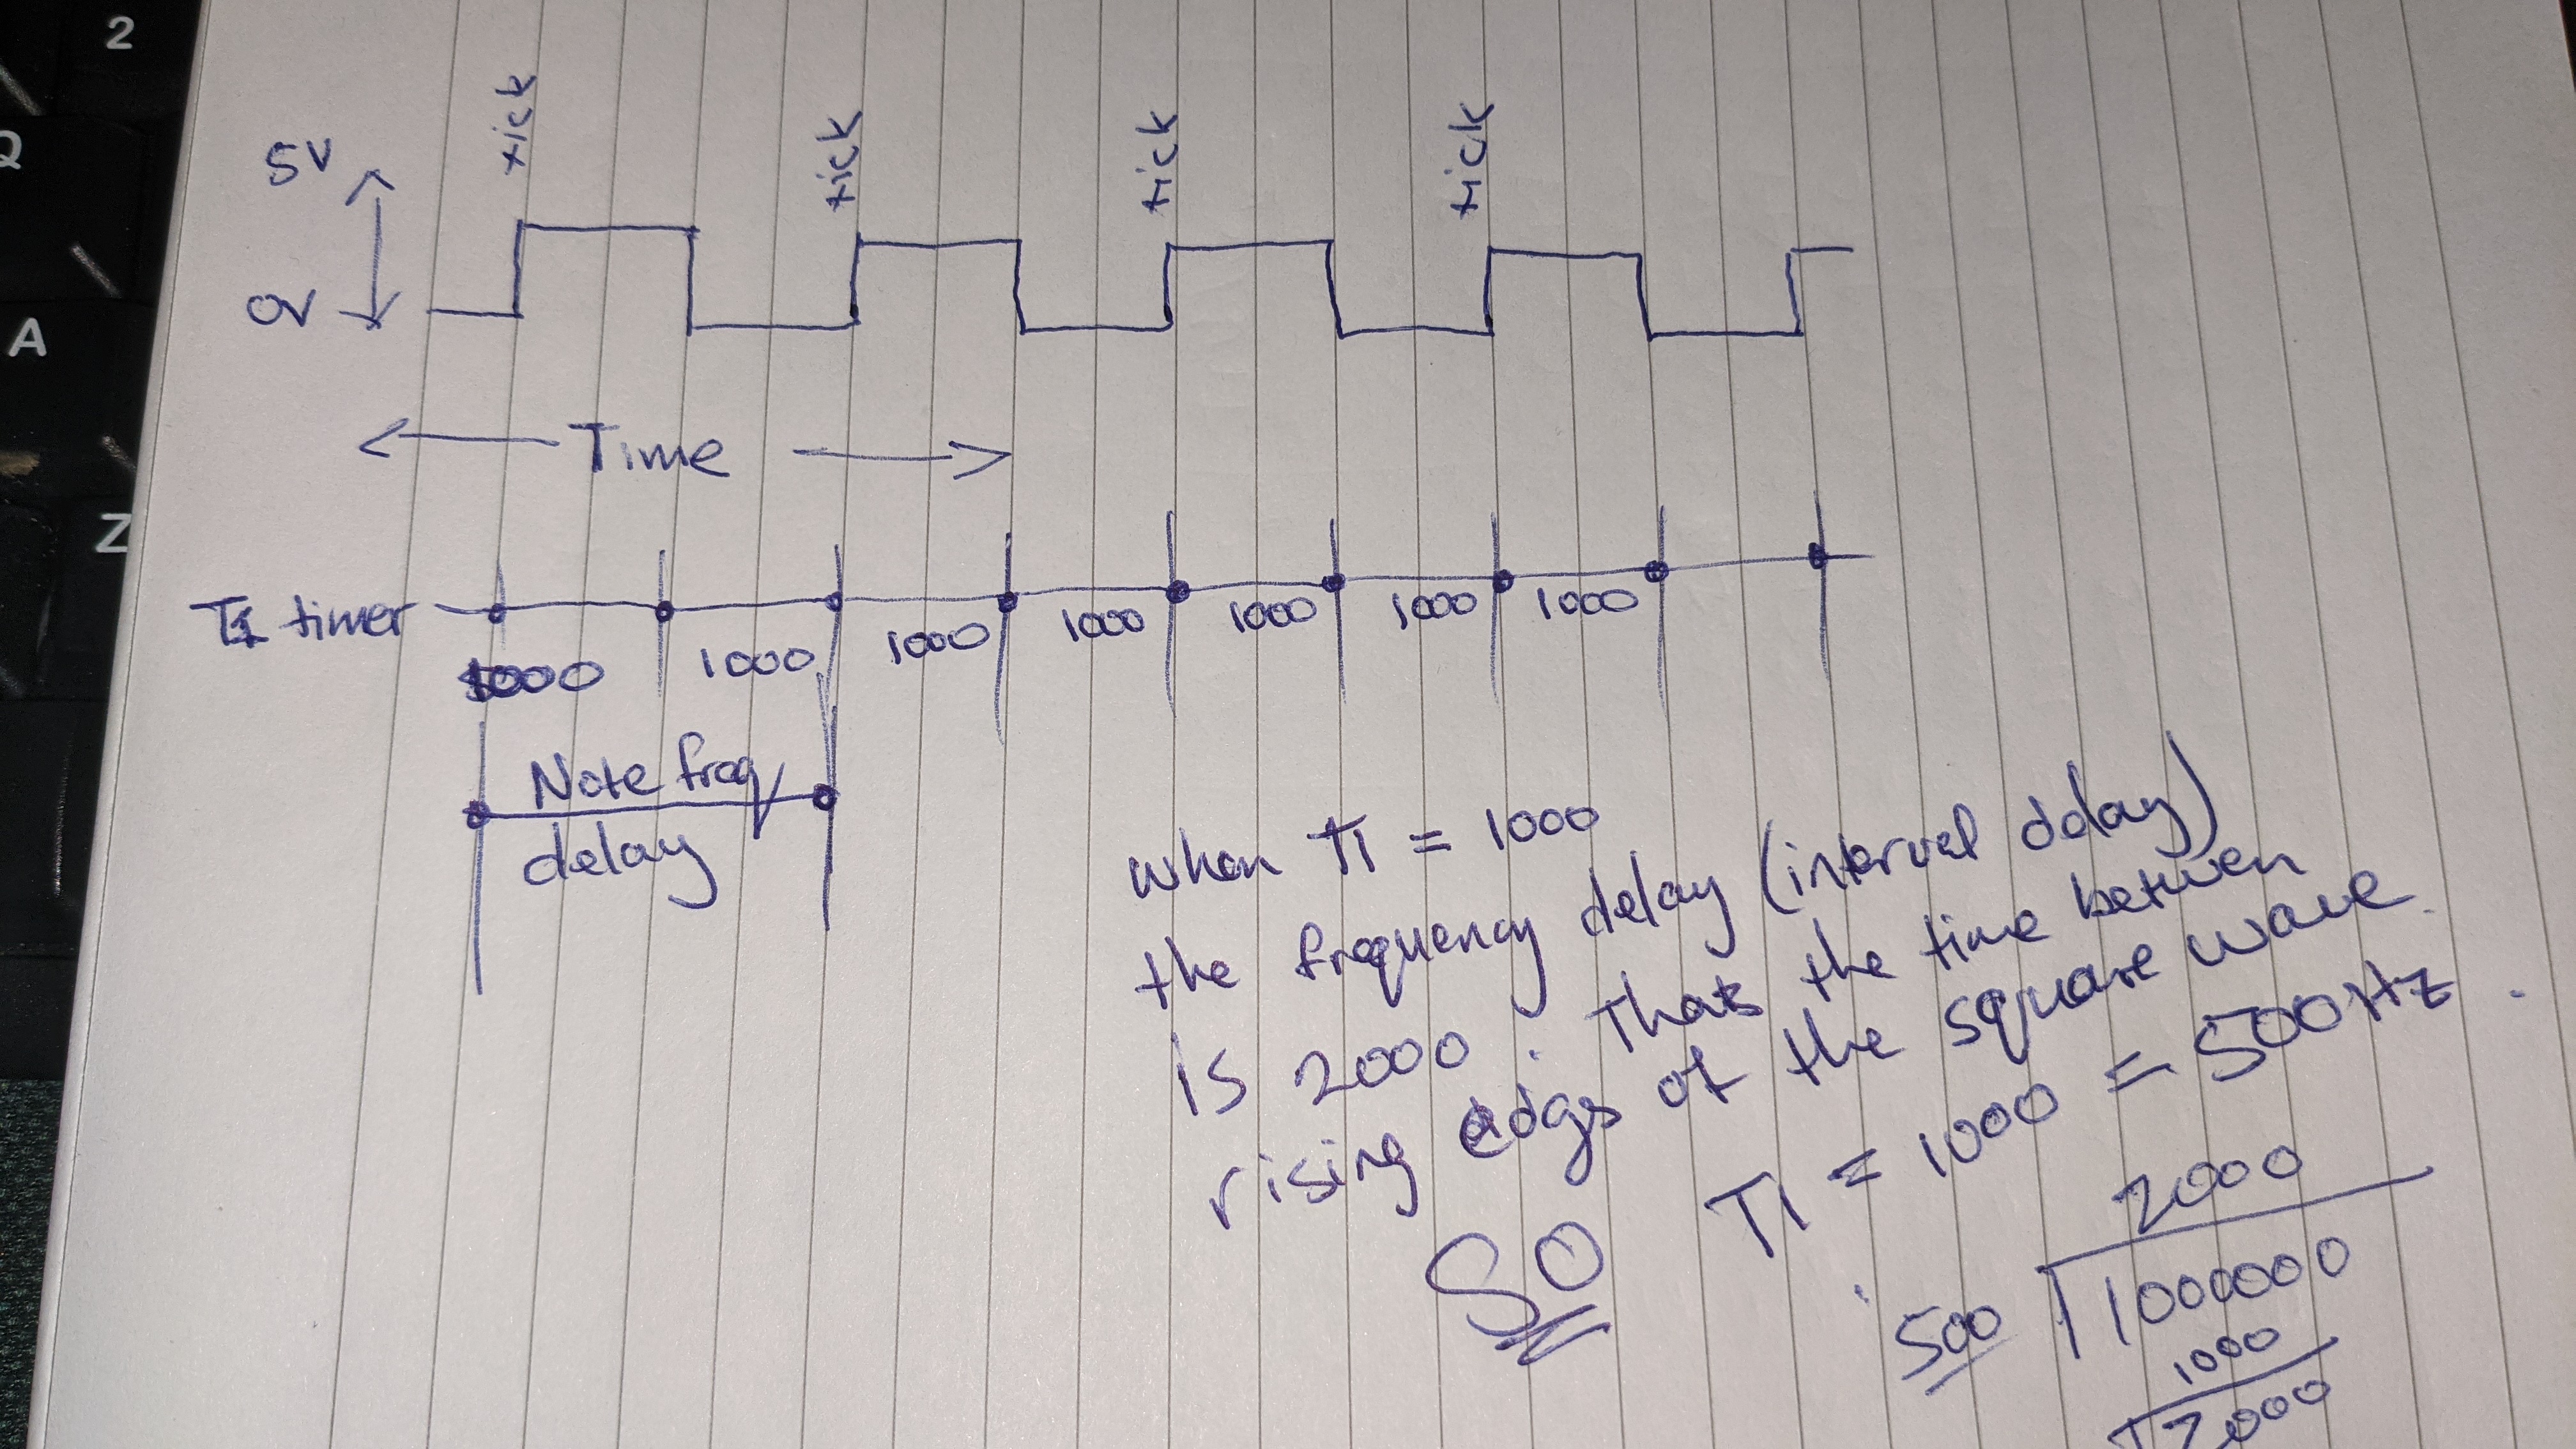 2
Q
A
Z
tick
tick
tick
tick
5V
0V
Time
T1 timer
1000
1000
1000
1000
1000
1000
1000
Note freq
delay
when T1 = 1000
the frequency delay (interval delay)
is 2000. Thats the time between
rising edges of the square wave.
SO T1 = 1000 = 500Hz.
2000
500 1000000
1000
2000